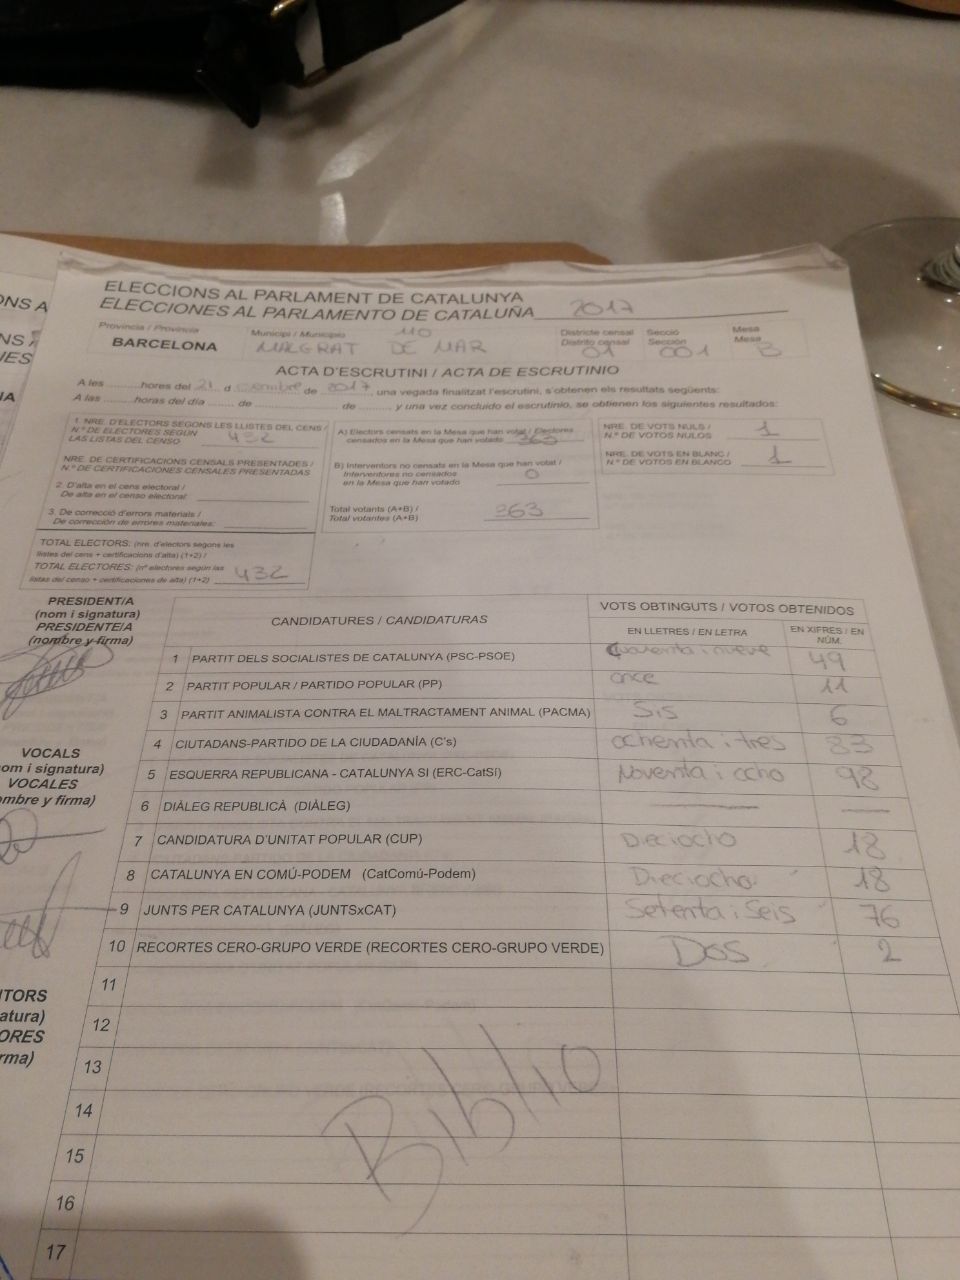 ELECCIONS AL PARLAMENT DE CATALUNYA
ELECCIONES AL PARLAMENTO DE CATALUÑA 2017
Provincia / Provincia
BARCELONA
Municipi / Municipio 110
MALGRAT DE MAR
Districte censal
Distrito censal 01
Secció
Sección 001
Mesa
Mesa B
ACTA D'ESCRUTINI / ACTA DE ESCRUTINIO
A les ..........hores del 21 d de 2017, una vegada finalitzat l'escrutini, s'obtenen els resultats següents:
A las ..........horas del día ........ de ........................ de ......... y una vez concluido el escrutinio, se obtienen los siguientes resultados:
1. NRE. D'ELECTORS SEGONS LES LLISTES DEL CENS /
N.º DE ELECTORES SEGÚN
LAS LISTAS DEL CENSO 432
NRE. DE CERTIFICACIONS CENSALS PRESENTADES /
N.º DE CERTIFICACIONES CENSALES PRESENTADAS
2. D'alta en el cens electoral /
De alta en el censo electoral:
3. De correcció d'errors materials /
De corrección de errores materiales:
TOTAL ELECTORS: (nre. d'electors segons les
llistes del cens + certificacions d'alta) (1+2) /
TOTAL ELECTORES: (nº electores según las
listas del censo + certificaciones de alta) (1+2) 432
A) Electors censats en la Mesa que han votat / Electores
censados en la Mesa que han votado 363
B) Interventors no censats en la Mesa que han votat /
Interventores no censados
en la Mesa que han votado 0
Total votants (A+B) /
Total votantes (A+B) 363
NRE. DE VOTS NULS /
N.º DE VOTOS NULOS 1
NRE. DE VOTS EN BLANC /
N.º DE VOTOS EN BLANCO 1
PRESIDENT/A
(nom i signatura)
PRESIDENTE/A
(nombre y firma)
VOCALS
om i signatura)
VOCALES
mbre y firma)
TORS
atura)
ORES
rma)
CANDIDATURES / CANDIDATURAS
VOTS OBTINGUTS / VOTOS OBTENIDOS
EN LLETRES / EN LETRA
EN XIFRES / EN NÚM.
1 PARTIT DELS SOCIALISTES DE CATALUNYA (PSC-PSOE) Cuarenta i nueve 49
2 PARTIT POPULAR / PARTIDO POPULAR (PP) once 11
3 PARTIT ANIMALISTA CONTRA EL MALTRACTAMENT ANIMAL (PACMA) Sis 6
4 CIUTADANS-PARTIDO DE LA CIUDADANÍA (C's) ochenta i tres 83
5 ESQUERRA REPUBLICANA - CATALUNYA SI (ERC-CatSí) Noventa i ocho 98
6 DIÀLEG REPUBLICÀ (DIÀLEG)
7 CANDIDATURA D'UNITAT POPULAR (CUP) Dieciocho 18
8 CATALUNYA EN COMÚ-PODEM (CatComú-Podem) Dieciocho 18
9 JUNTS PER CATALUNYA (JUNTSxCAT) Setenta i Seis 76
10 RECORTES CERO-GRUPO VERDE (RECORTES CERO-GRUPO VERDE) Dos 2
11
12
13
14
15
16
17
Biblio